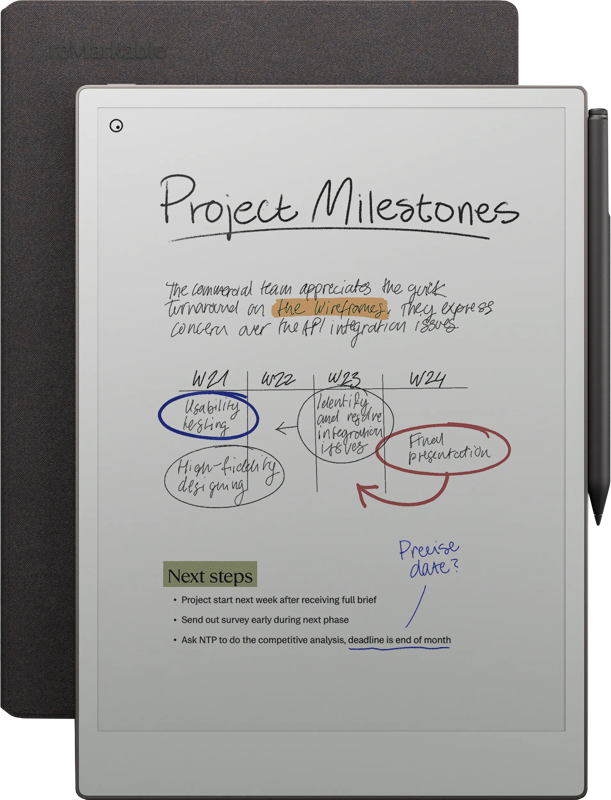 reMarkable
Project Milestones
The commercial team appreciates the quick
turnaround on the wireframes. They express
concern over the API integration issues.
W21 W22 W23 W24
Usability
testing
Identify
and resolve
integration
issues
Final
presentation
High-fidelity
designing
Precise
date?
Next steps
• Project start next week after receiving full brief
• Send out survey early during next phase
• Ask NTP to do the competitive analysis, deadline is end of month